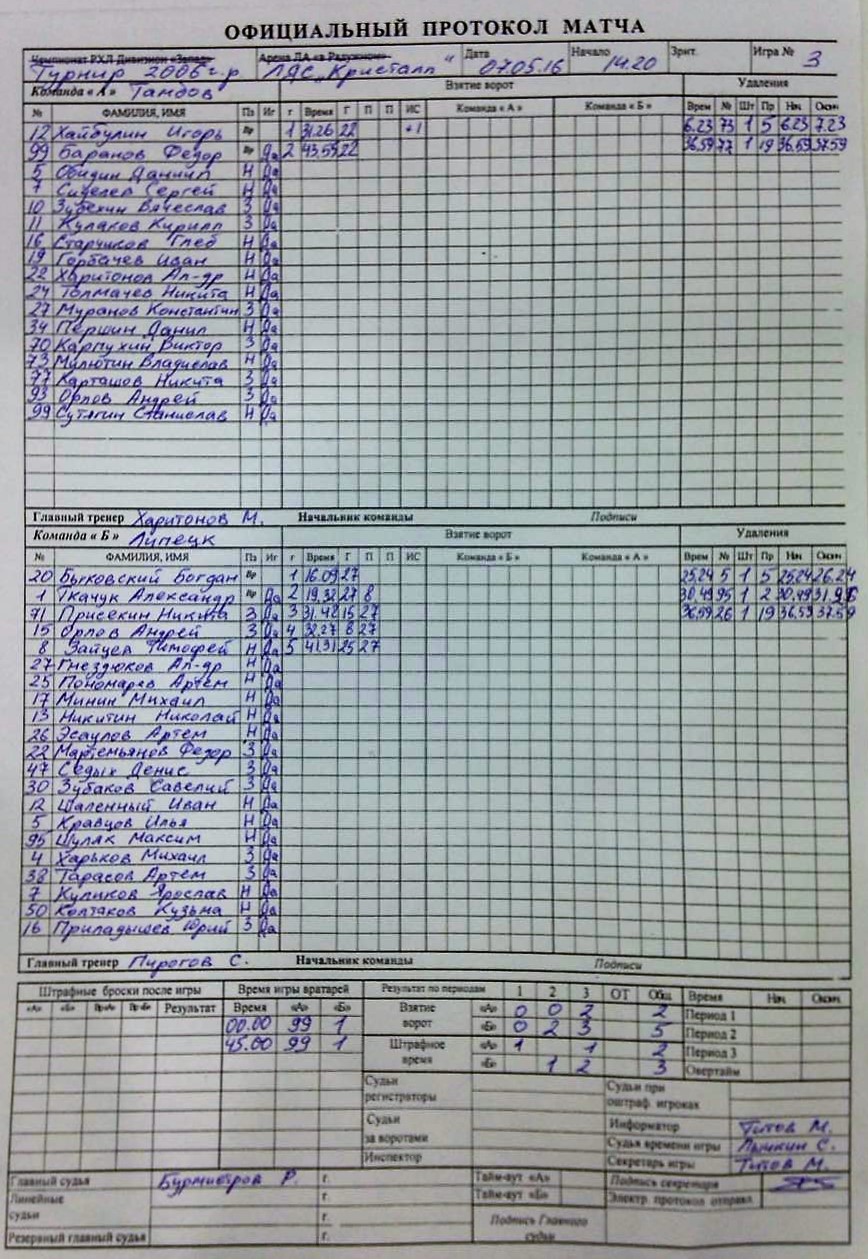 ОФИЦИАЛЬНЫЙ ПРОТОКОЛ МАТЧА
Чемпионат РХЛ Дивизион «Запад» Арена ЛА «в Радужном» Дата Начало Зрит. Игра № 3
Турнир 2006 г.р ЛДС „Кристалл" 07.05.16 14.20
Команда « А » Тамбов Взятие ворот Удаления
№ ФАМИЛИЯ, ИМЯ Пз Иг г Время Г П П ИС Команда « А » Команда « Б » Врем № Шт Пр Нач Окон
12 Хайбулин Игорь Вр 1 31.26 22 +1 6.23 73 1 5 6.23 7.23
99 Баранов Федор Вр Да 2 43.59 22 36.59 77 1 19 36.59 37.59
5 Обидин Даниил Н Да
7 Сергей Н Да
10 Зубехин Вячеслав З Да
11 Кулаков Кирилл З Да
16 Старчиков Глеб Н Да
19 Горбачев Иван Н Да
22 Харитонов Ал-др Н Да
24 Толмачев Никита Н Да
27 Муранов Константин З Да
34 Першин Данил Н Да
70 Карпухин Виктор З Да
73 Милютин Владислав Н Да
77 Карташов Никита З Да
93 Орлов Андрей З Да
99 Сутягин Станислав Н Да
Главный тренер Харитонов М. Начальник команды Подписи
Команда « Б » Липецк Взятие ворот Удаления
№ ФАМИЛИЯ, ИМЯ Пз Иг г Время Г П П ИС Команда « Б » Команда « А » Врем № Шт Пр Нач Окон
20 Быковский Богдан Вр 1 16.09 27 25.24 5 1 5 25.24 26.24
1 Ткачук Александр Вр Да 2 19.32 27 8 30.49 95 1 2 30.49
71 Присекин Никита З Да 3 31.42 15 27 36.59 26 1 19 36.59 37.59
15 Орлов Андрей З Да 4 32.27 8 27
8 Зайцев Тимофей Н Да 5 41.31 25 27
27 Гнездюков Ал-др Н Да
25 Пономарев Артем Н Да
17 Минин Михаил Н Да
13 Никитин Николай Н Да
26 Эсаулов Артем Н Да
22 Мартемьянов Федор З Да
47 Седых Денис З Да
30 Зубаков Савелий З Да
12 Шаленный Иван Н Да
5 Кравцов Илья Н Да
95 Шуляк Максим Н Да
4 Харьков Михаил З Да
38 Тарасов Артем З Да
7 Куликов Ярослав Н Да
50 Колтаков Кузьма Н Да
16 Приладышев Юрий З Да
Главный тренер Пирогов С. Начальник команды Подписи
Штрафные броски после игры Время игры вратарей Результат по периодам 1 2 3 ОТ Общ Время Нач Окон
«А» «Б» Вр«А» Вр«Б» Результат Время «А» «Б» Взятие ворот «А» 0 0 2 2 Период 1
00.00 99 1 «Б» 0 2 3 5 Период 2
45.00 99 1 Штрафное время «А» 1 1 2 Период 3
«Б» 1 2 3 Овертайм
Судьи регистраторы Судьи при оштраф. игроках
Судьи за воротами Информатор Титов М.
Судья времени игры С.
Инспектор Секретарь игры Титов М.
Главный судья Бурмистров Р. г. Тайм-аут «А» Подпись секретаря
Линейные судьи г. Тайм-аут «Б» Электр. протокол отправл.
г. Подпись Главного судьи
Резервный главный судья г.